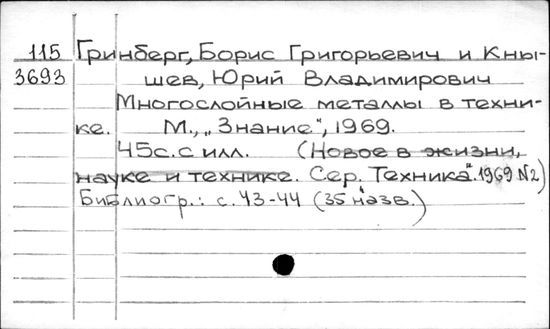 115 Гринберг, Борис Григорьевич и Кны-
3693 шев, Юрий Владимирович
Многослойные металлы в техни-
ке. М., „Знание", 1969.
45с. с илл. (Новое в жизни,
науке и технике. Сер. „Техника". 1969 №2)
Библиогр.: с. 43-44 (35 назв.)